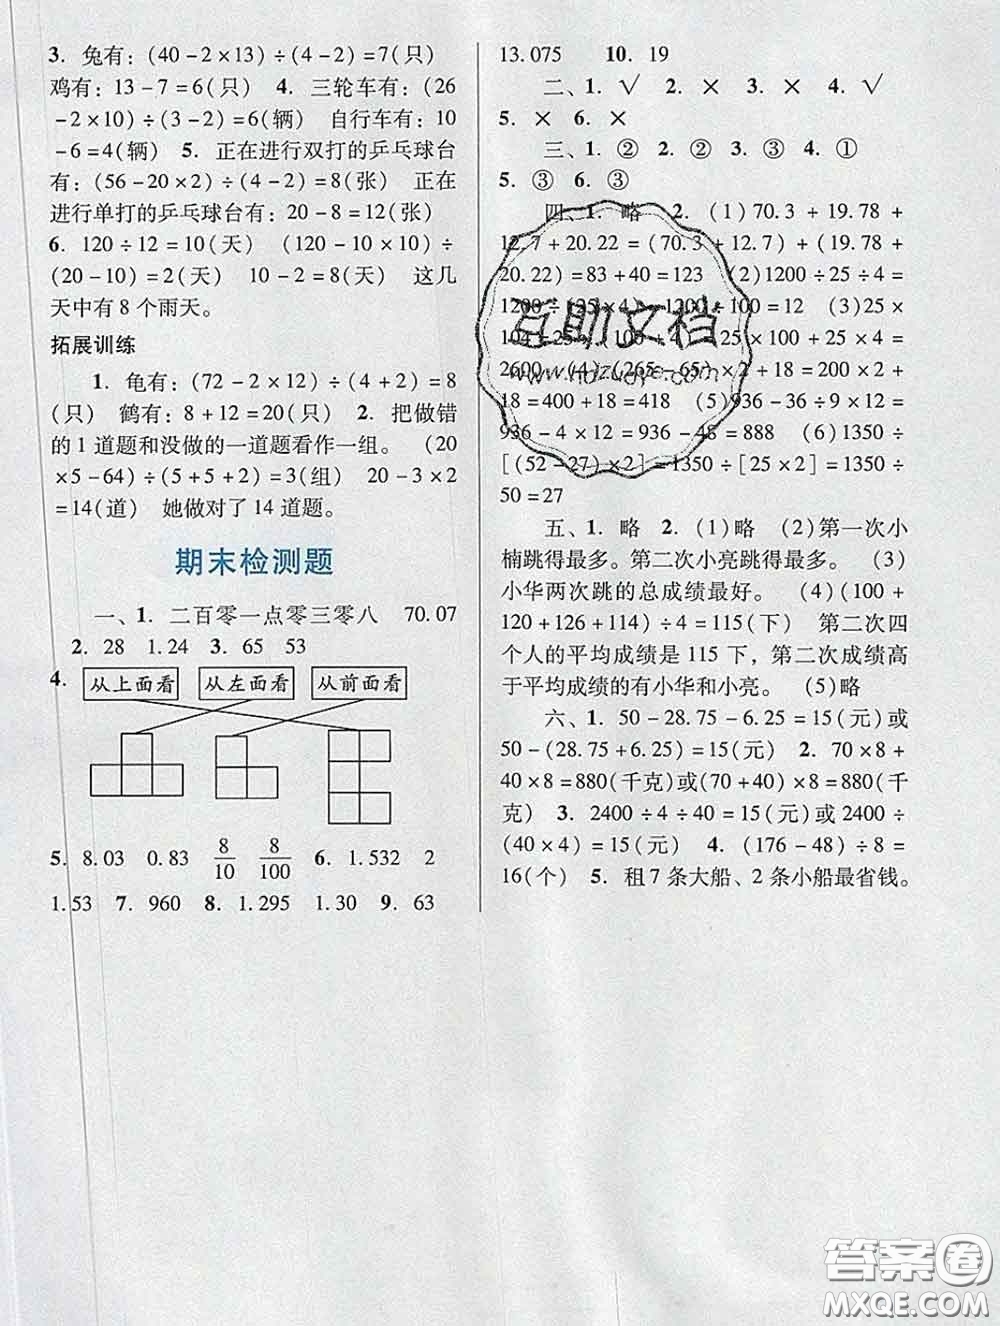 3. 兔有：(40－2×13)÷(4－2)=7(只)
鸡有：13－7=6(只)　4. 三轮车有：(26
－2×10)÷(3－2)=6(辆)　自行车有：10
－6=4(辆)　5. 正在进行双打的乒乓球台
有：(56－20×2)÷(4－2)=8(张)　正在
进行单打的乒乓球台有：20－8=12(张)
6. 120÷12=10(天)　(120－10×10)÷
(20－10)=2(天)　10－2=8(天)　这几
天中有8个雨天。
拓展训练
1. 龟有：(72－2×12)÷(4+2)=8
(只)　鹤有：8+12=20(只)　2. 把做错
的1道题和没做的一道题看作一组。　(20
×5－64)÷(5+5+2)=3(组)　20－3×2
=14(道)　她做对了14道题。
期末检测题
一、1. 二百零一点零三零八　70.07
2. 28　1.24　3. 65　53
4. 从上面看　从左面看　从前面看
5. 8.03　0.83　8/10　8/100　6. 1.532　2
1.53　7. 960　8. 1.295　1.30　9. 63
13.075　10. 19
二、1. √　2. ×　3. ×　4. √
5. ×　6. ×
三、1. ②　2. ②　3. ③　4. ①
5. ③　6. ③
四、1. 略　2. (1)70.3+19.78+
12.7+20.22=(70.3+12.7)+(19.78+
20.22)=83+40=123　(2)1200÷25÷4=
1200÷(25×4)=1200÷100=12　(3)25×
104=25×(100+4)=25×100+25×4=
2600　(4)(265－65)×2+18=200×2+
18=400+18=418　(5)936－36÷9×12=
936－4×12=936－48=888　(6)1350÷
[(52－27)×2]=1350÷[25×2]=1350÷
50=27
五、1. 略　2. (1)略　(2)第一次小
楠跳得最多。第二次小亮跳得最多。　(3)
小华两次跳的总成绩最好。　(4)(100+
120+126+114)÷4=115(下)　第二次四
个人的平均成绩是115下，第二次成绩高
于平均成绩的有小华和小亮。　(5)略
六、1. 50－28.75－6.25=15(元)或
50－(28.75+6.25)=15(元)　2. 70×8+
40×8=880(千克)或(70+40)×8=880(千
克)　3. 2400÷4÷40=15(元)或2400÷
(40×4)=15(元)　4. (176－48)÷8=
16(个)　5. 租7条大船、2条小船最省钱。
互助文档
答案卷
MXQE.COM